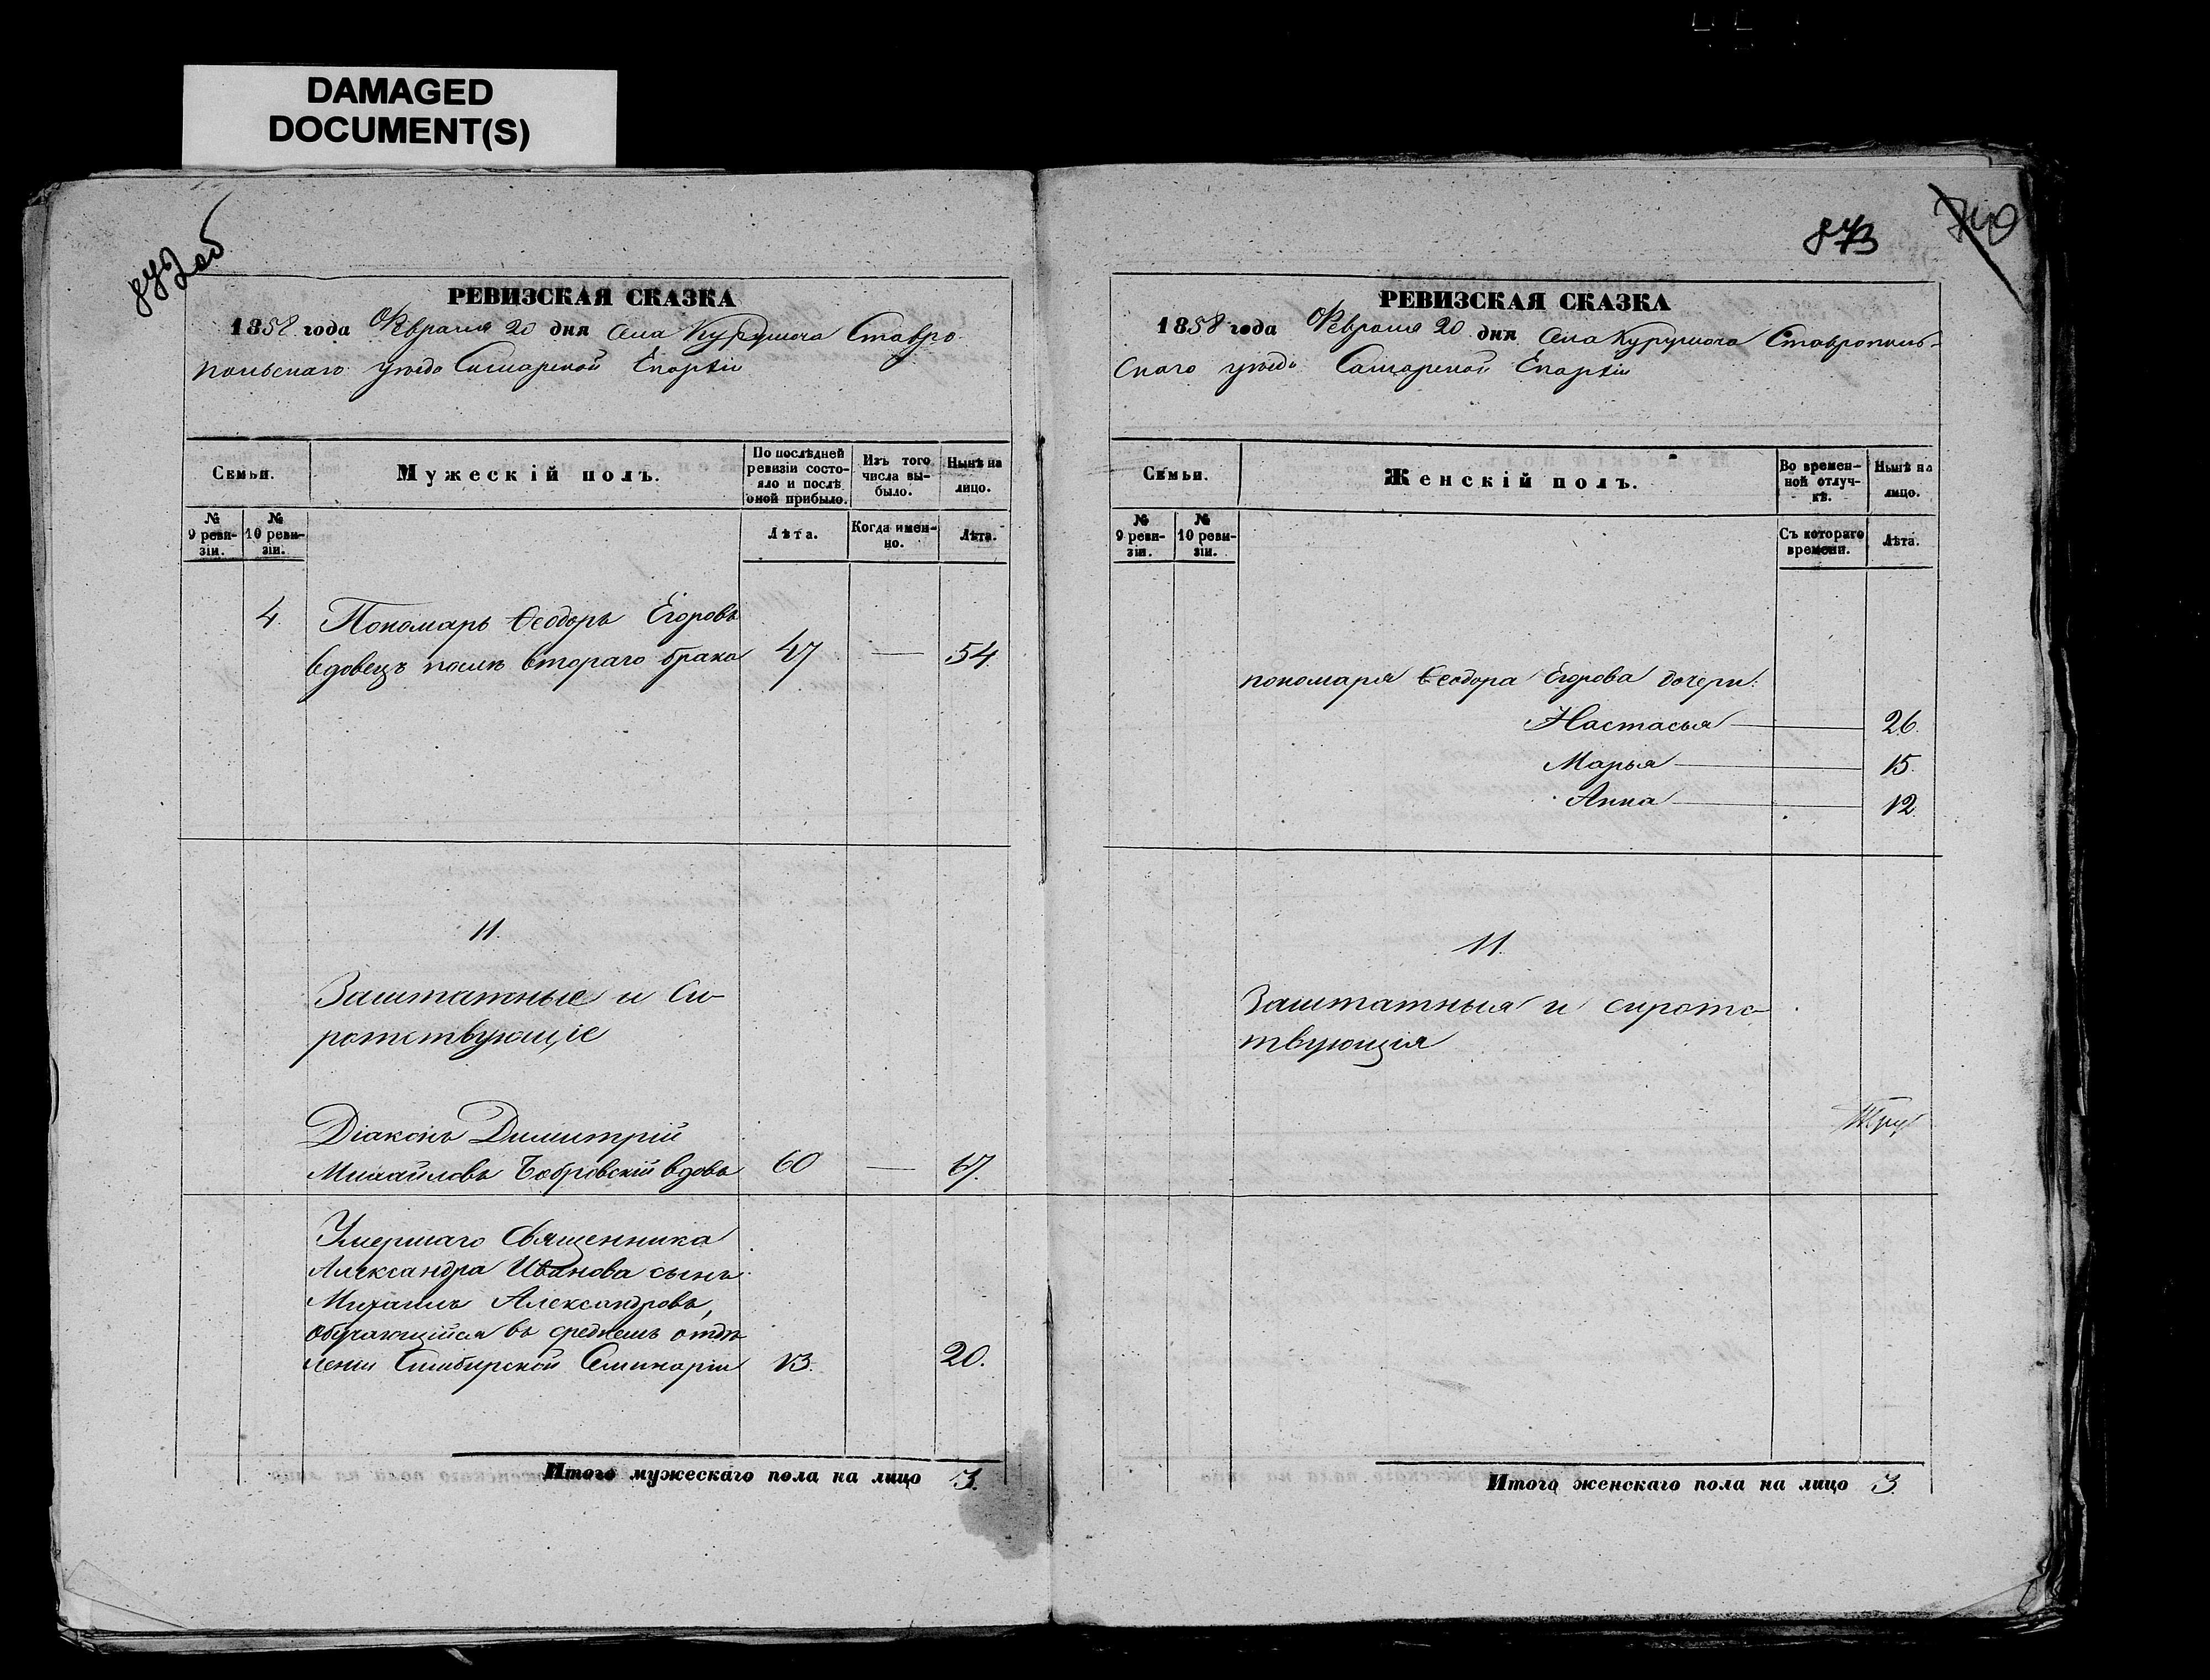 DAMAGED
DOCUMENT(S)
872 об
РЕВИЗСКАЯ СКАЗКА
1858 года Февраля 20 дня села Курумоча Ставро-
польскаго уѣзда Самарской Епархіи
Семьи.
Мужескій полъ.
По послѣдней
ревизіи состо-
яло и послѣ
оной прибыло.
Изъ того
числа вы-
было.
Нынѣ на
лицо.
№
9 реви-
зіи.
№
10 реви-
зіи.
Лѣта.
Когда имен-
но.
Лѣта.
4. Пономарь Ѳеодоръ Егоровъ
вдовецъ послѣ втораго брака 47 — 54.
11.
Заштатные и Си-
ротствующіе
Діаконъ Димитрій
Михайловъ Бобровскій вдовъ 60 — 67.
Умершаго Священника
Александра Иванова сынъ
Михаилъ Александровъ,
обучающійся въ среднемъ отдѣ
леніи Симбирской Семинаріи 13. 20.
Итого мужескаго пола на лицо 3.
873
740
РЕВИЗСКАЯ СКАЗКА
1858 года Февраля 20 дня села Курумоча Ставрополь-
скаго уѣзда Самарской Епархіи
Семьи.
Женскій полъ.
Во времен-
ной отлуч-
кѣ.
Нынѣ на
лицо.
№
9 реви-
зіи.
№
10 реви-
зіи.
Съ котораго
времени.
Лѣта.
пономаря Ѳеодора Егорова дочери:
Настасья — 26.
Марья — 15.
Анна — 12.
11.
Заштатныя и сиротс-
твующія
Итого женскаго пола на лицо 3.